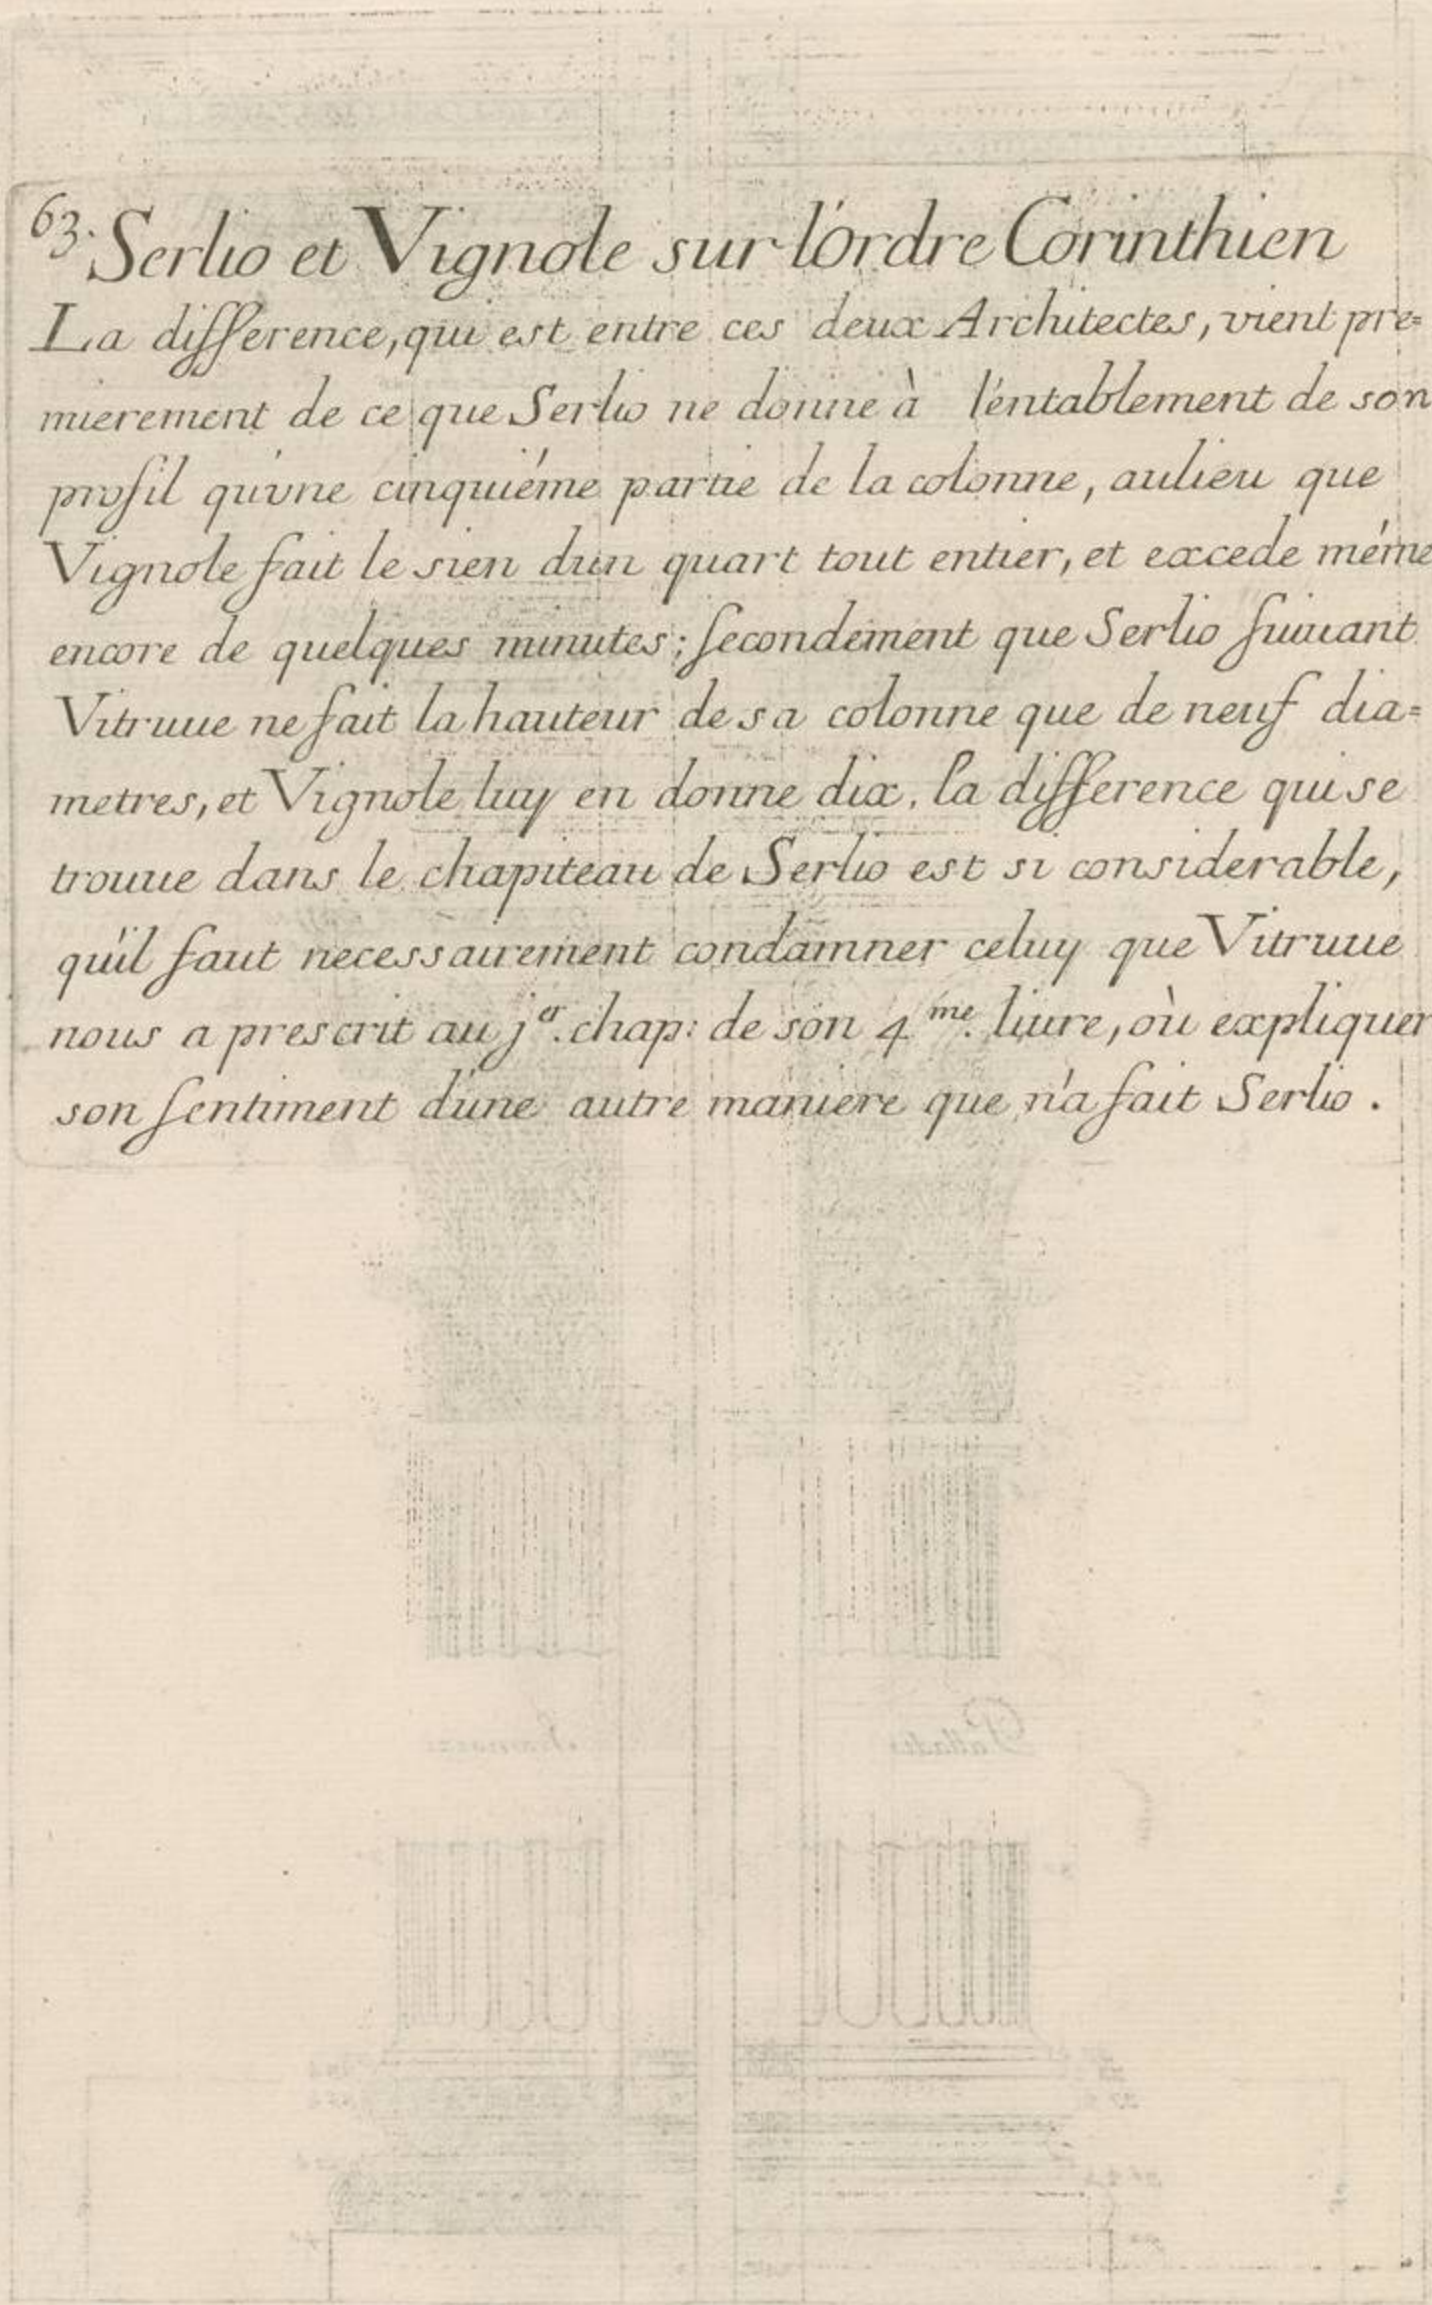 63. Serlio et Vignole sur l'Ordre Corinthien
La difference, qui est entre ces deux Architectes, vient pre=
mierement de ce que Serlio ne donne à l'éntablement de son
profil qu'vne cinquiéme partie de la colonne, aulieu que
Vignole fait le sien d'un quart tout entier, et excede méme
encore de quelques minutes; secondement que Serlio suiuant
Vitruue ne fait la hauteur de sa colonne que de neuf dia=
metres, et Vignole luy en donne dix. la difference qui se
trouue dans le chapiteau de Serlio est si considerable,
qu'il faut necessairement condamner celuy que Vitruue
nous a prescrit au j.er chap: de son 4.me liure, où expliquer
son sentiment d'une autre maniere que n'a fait Serlio.
Palladio